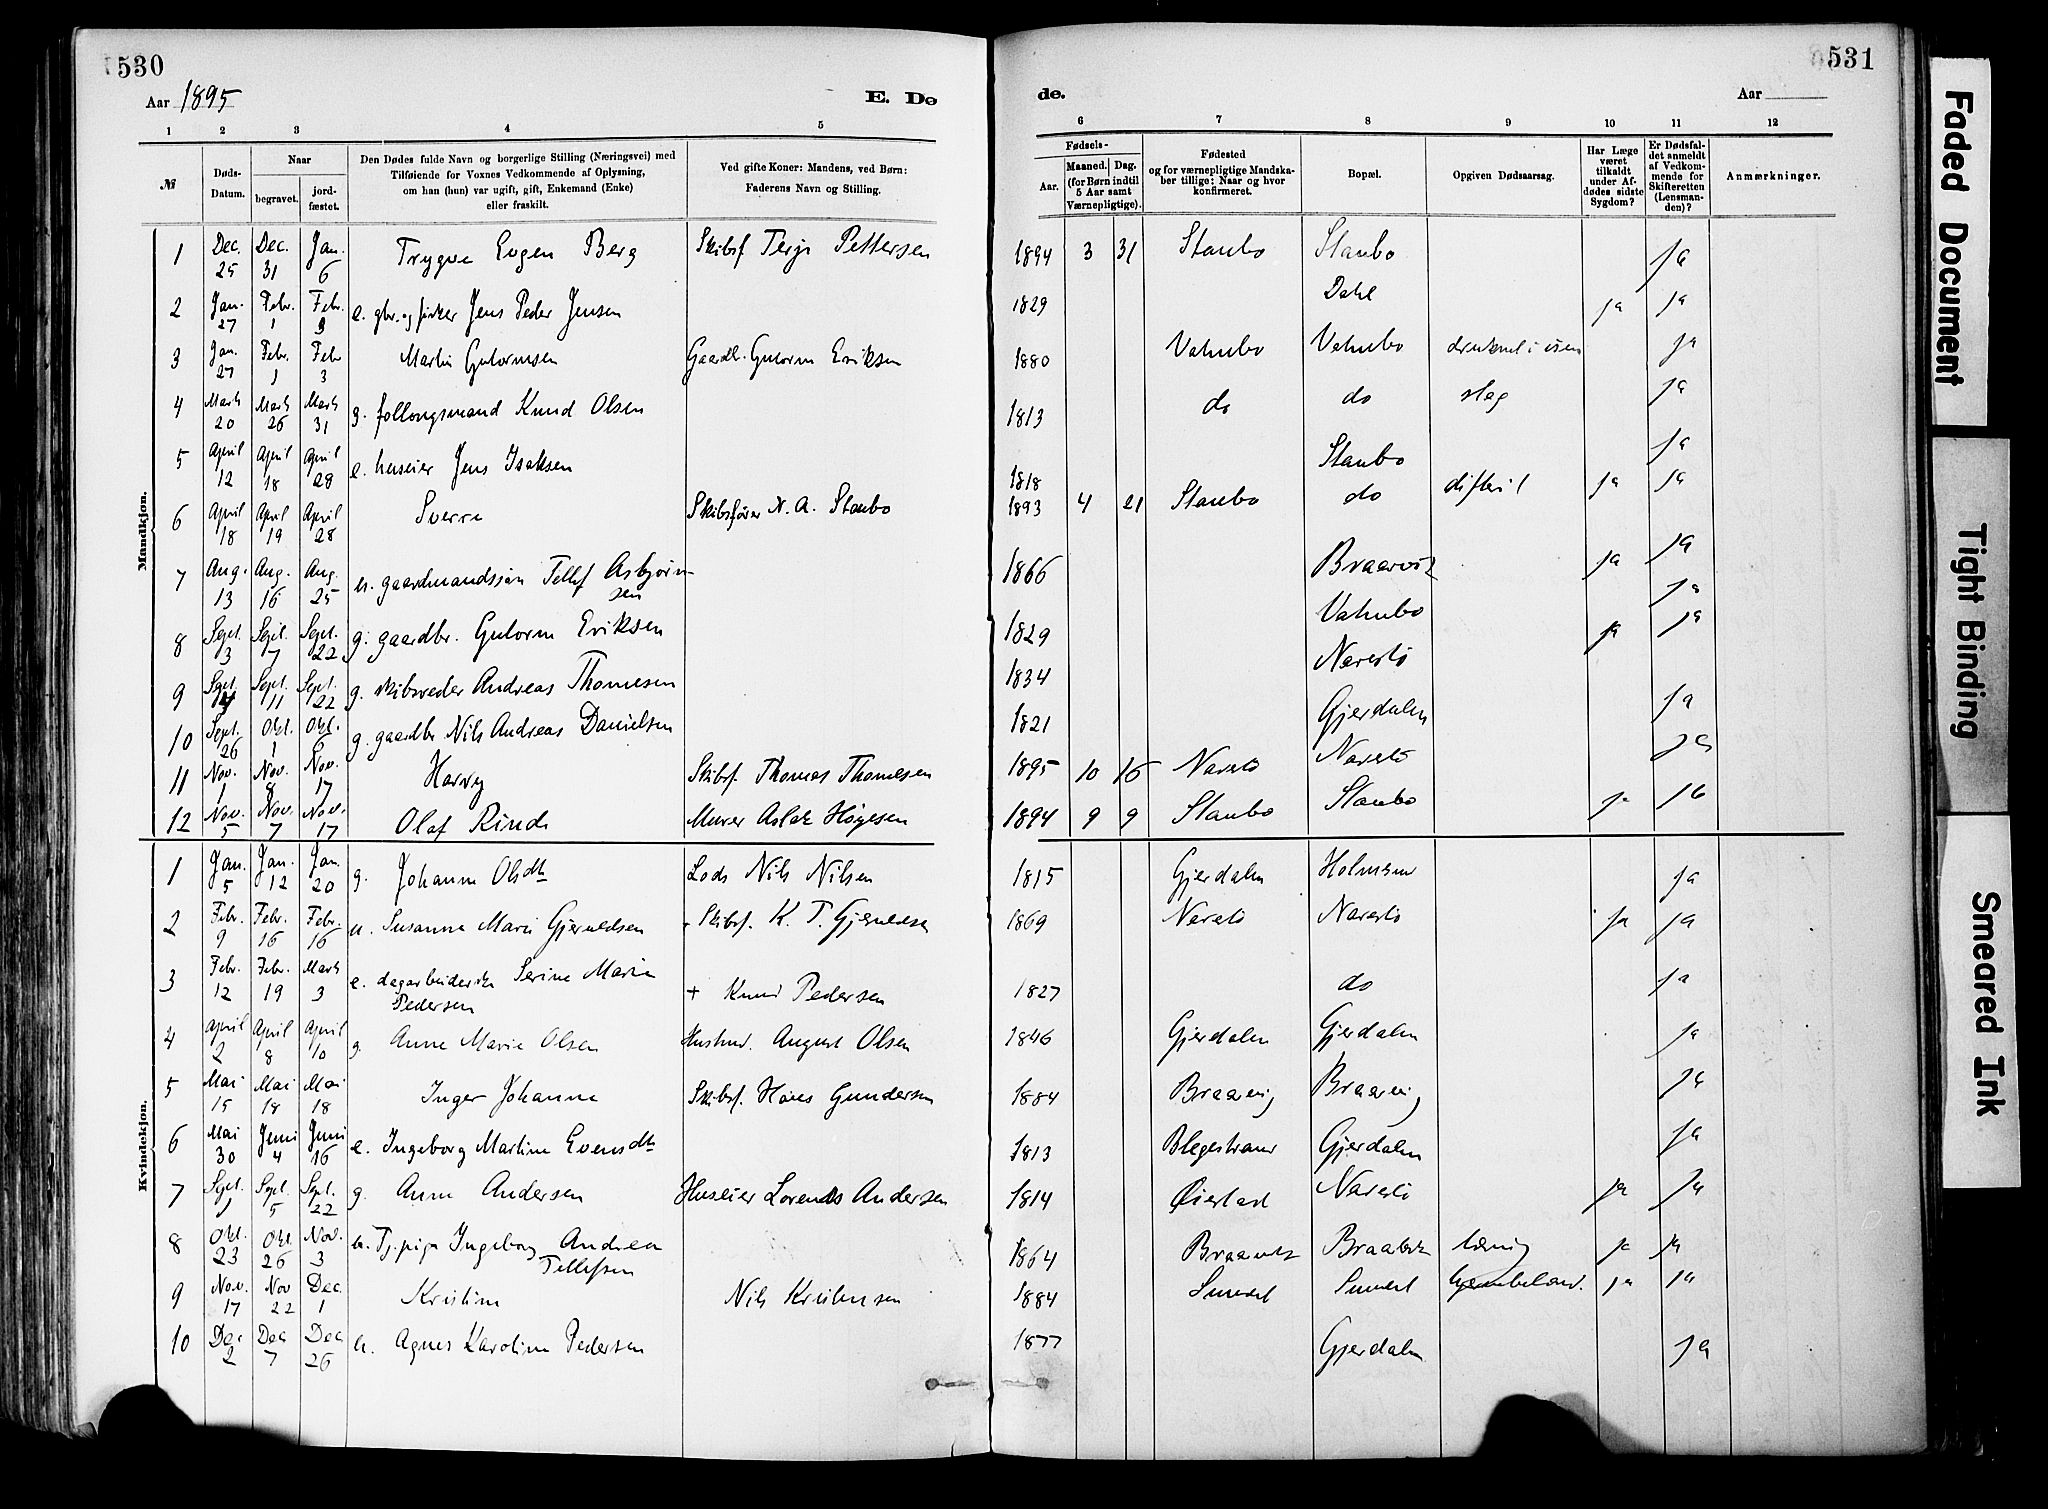 530
Aar 1895
E. De
1 2 3 4 5
№
Døds-
Datum.
Naar
begravet.
jord-
fæstet.
Den Dødes fulde Navn og borgerlige Stilling (Næringsvei) med
Tilføiende for Voxnes Vedkommende af Oplysning,
om han (hun) var ugift, gift, Enkemand (Enke)
eller fraskilt.
Ved gifte Koner: Mandens, ved Børn:
Faderens Navn og Stilling.
Mandkjøn.
1 Dec. 25 Dec. 31 Jan. 6 Trygve Eugen Berg Skibsf. Terje Pettersen
2 Jan. 27 Febr. 1 Febr. 3 e. gbr. og fisker Jens Peder Jensen
3 Jan. 27 Febr. 1 Febr 3 Martin Gutormsen Gaardb. Gutorm Eriksen
4 Marts 20 Marts 26 Marts 31 g. follougsmand Knud Olsen
5 April 12 April 18 April 28 e. huseier Jens Isaksen
6 April 18 April 19 April 28 Sverre Skibsfører N. A. Staubo
7 Aug. 13 Aug. 16 Aug. 25 u. gaardmandssøn Tellef Asbjørn-
sen
8 Sept. 3 Sept. 7 Sept. 22 g. gaardbr. Gutorm Eriksen
9 Sept. Sept. 11 Sept. 22 g. skibsreder Andreas Thomesen
10 Sept. 26 Okt. 1 Okt. 6 g. gaardbr Nils Andreas Danielsen
11 Nov. 1 Nov. 8 Nov. 17 Harry Skibsf. Thomas Thomesen
12 Nov. 5 Nov. 7 Nov. 17 Olaf Rinde Murer Aslak Høgesen
Kvindekjøn.
1 Jan. 5 Jan. 12 Jan. 20 g. Johanne Olsdtr Lods Nils Nilsen
2 Febr. 9 Febr. 16 Febr. 16 u. Susanna Marie Gjeruldsen + Skibsf. K. T. Gjeruldsen
3 Febr. 12 Febr. 19 Marts 3 e. dagarbeiderske Serine Marie
Pedersen + Knud Pedersen
4 April 2 April 8 April 10 g. Anne Marie Olsen Husmd. August Olsen
5 Mai 15 Mai 18 Mai 18 Inger Johanne Skibsf. Hans Gundersen
6 Mai 30 Juni 4 Juni 16 e. Ingeborg Martine Evensdtr
7 Sept. 1 Sept. 5 Sept. 22 g. Anne Andersen Huseier Lorends Andersen
8 Okt. 23 Okt. 26 Nov. 3 u. Tj. pige Ingeborg Andrea
Tellefsen
9 Nov. 17 Nov 22 Dec. 1 Kristine Nils Kristensen
10 Dec 2 Dec 7 Dec 26 u. Agnes Karoline Pedersen
531
de.
Aar
6 7 8 9 10 11 12
Fødsels-
Aar.
Maaned. Dag.
(for Børn indtil
5 Aar samt
Værnepligtige).
Fødested
og for værnepligtige Mandska-
ber tillige: Naar og hvor
konfirmeret.
Bopæl.
Opgiven Dødsaarsag.
Har Læge
været
tilkaldt
under Af-
dødes sidste
Sygdom?
Er Dødsfal-
det anmeldt
af Vedkom-
mende for
Skifteretten
(Lensman-
den)?
Anmærkninger.
1894 3 31 Staubo Staubo ja
1829 Dahl ja ja
1880 Vatnebo Vatnebo druknet i isen ja
1813 do do slag ja
1818 Staubo ja
1893 4 21 Staubo do difterit ja ja
1866 Braarvik ja ja
1829 Vatnebo ja
1834 Narestø ja ja
1821 Gjerdalen ja
1895 10 16 Narestø Narestø ja
1894 9 9 Staubo Staubo ja ja
1815 Gjerdalen Holmsen ja
1869 Narestø Narestø ja ja
1827 do ja
1846 Gjerdalen Gjerdalen ja
1884 Braarvig Braarvig ja
1813 Blegestranr Gjerdalen ja
1814 Øiestad Narestø ja ja
1864 Braarvik Braarvik tæring ja ja
1884 ja ja
1877 Gjerdalen ja
Faded Document
Tight Binding
Smeared Ink